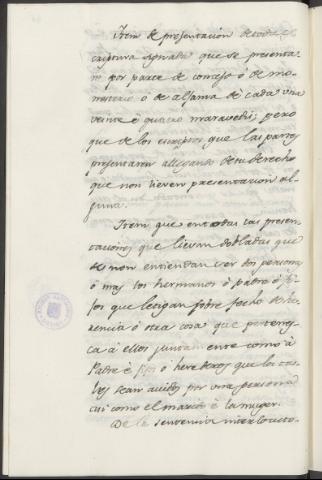 Item de presentacion de toda es
criptura signada que se presenta
re por parte de concejo ó de mo-
nasterio ó de aljama de cada una
veinte é quatro maravedis; pero
que de los escriptos que las partes
presentaren allegando de su derecho
que non lleven presentacion al-
guna.
Item que en todas las presen-
taciones que llevan dobladas que
se non entiendan ser dos personas
ó mas los hermanos ó padre ó fi-
jos que letigan sobre fecho de he-
rencia ó otra cosa que pertenes-
ca á ellos juntamente como á
Padre é fijos ó herederos que los ta-
les sean avidos por una persona
asi como el marido é la muger.
De la sentencia interlocuto-